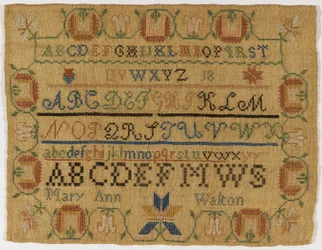 ABCDEFGHIJKLMNOPQRST
UVWXYZ 18
ABCDEFGHIJKLM
NOPQRSTUVWX
abcdefghijklmnopqrstuvwxy
ABCDEFMWS
Mary Ann Walton